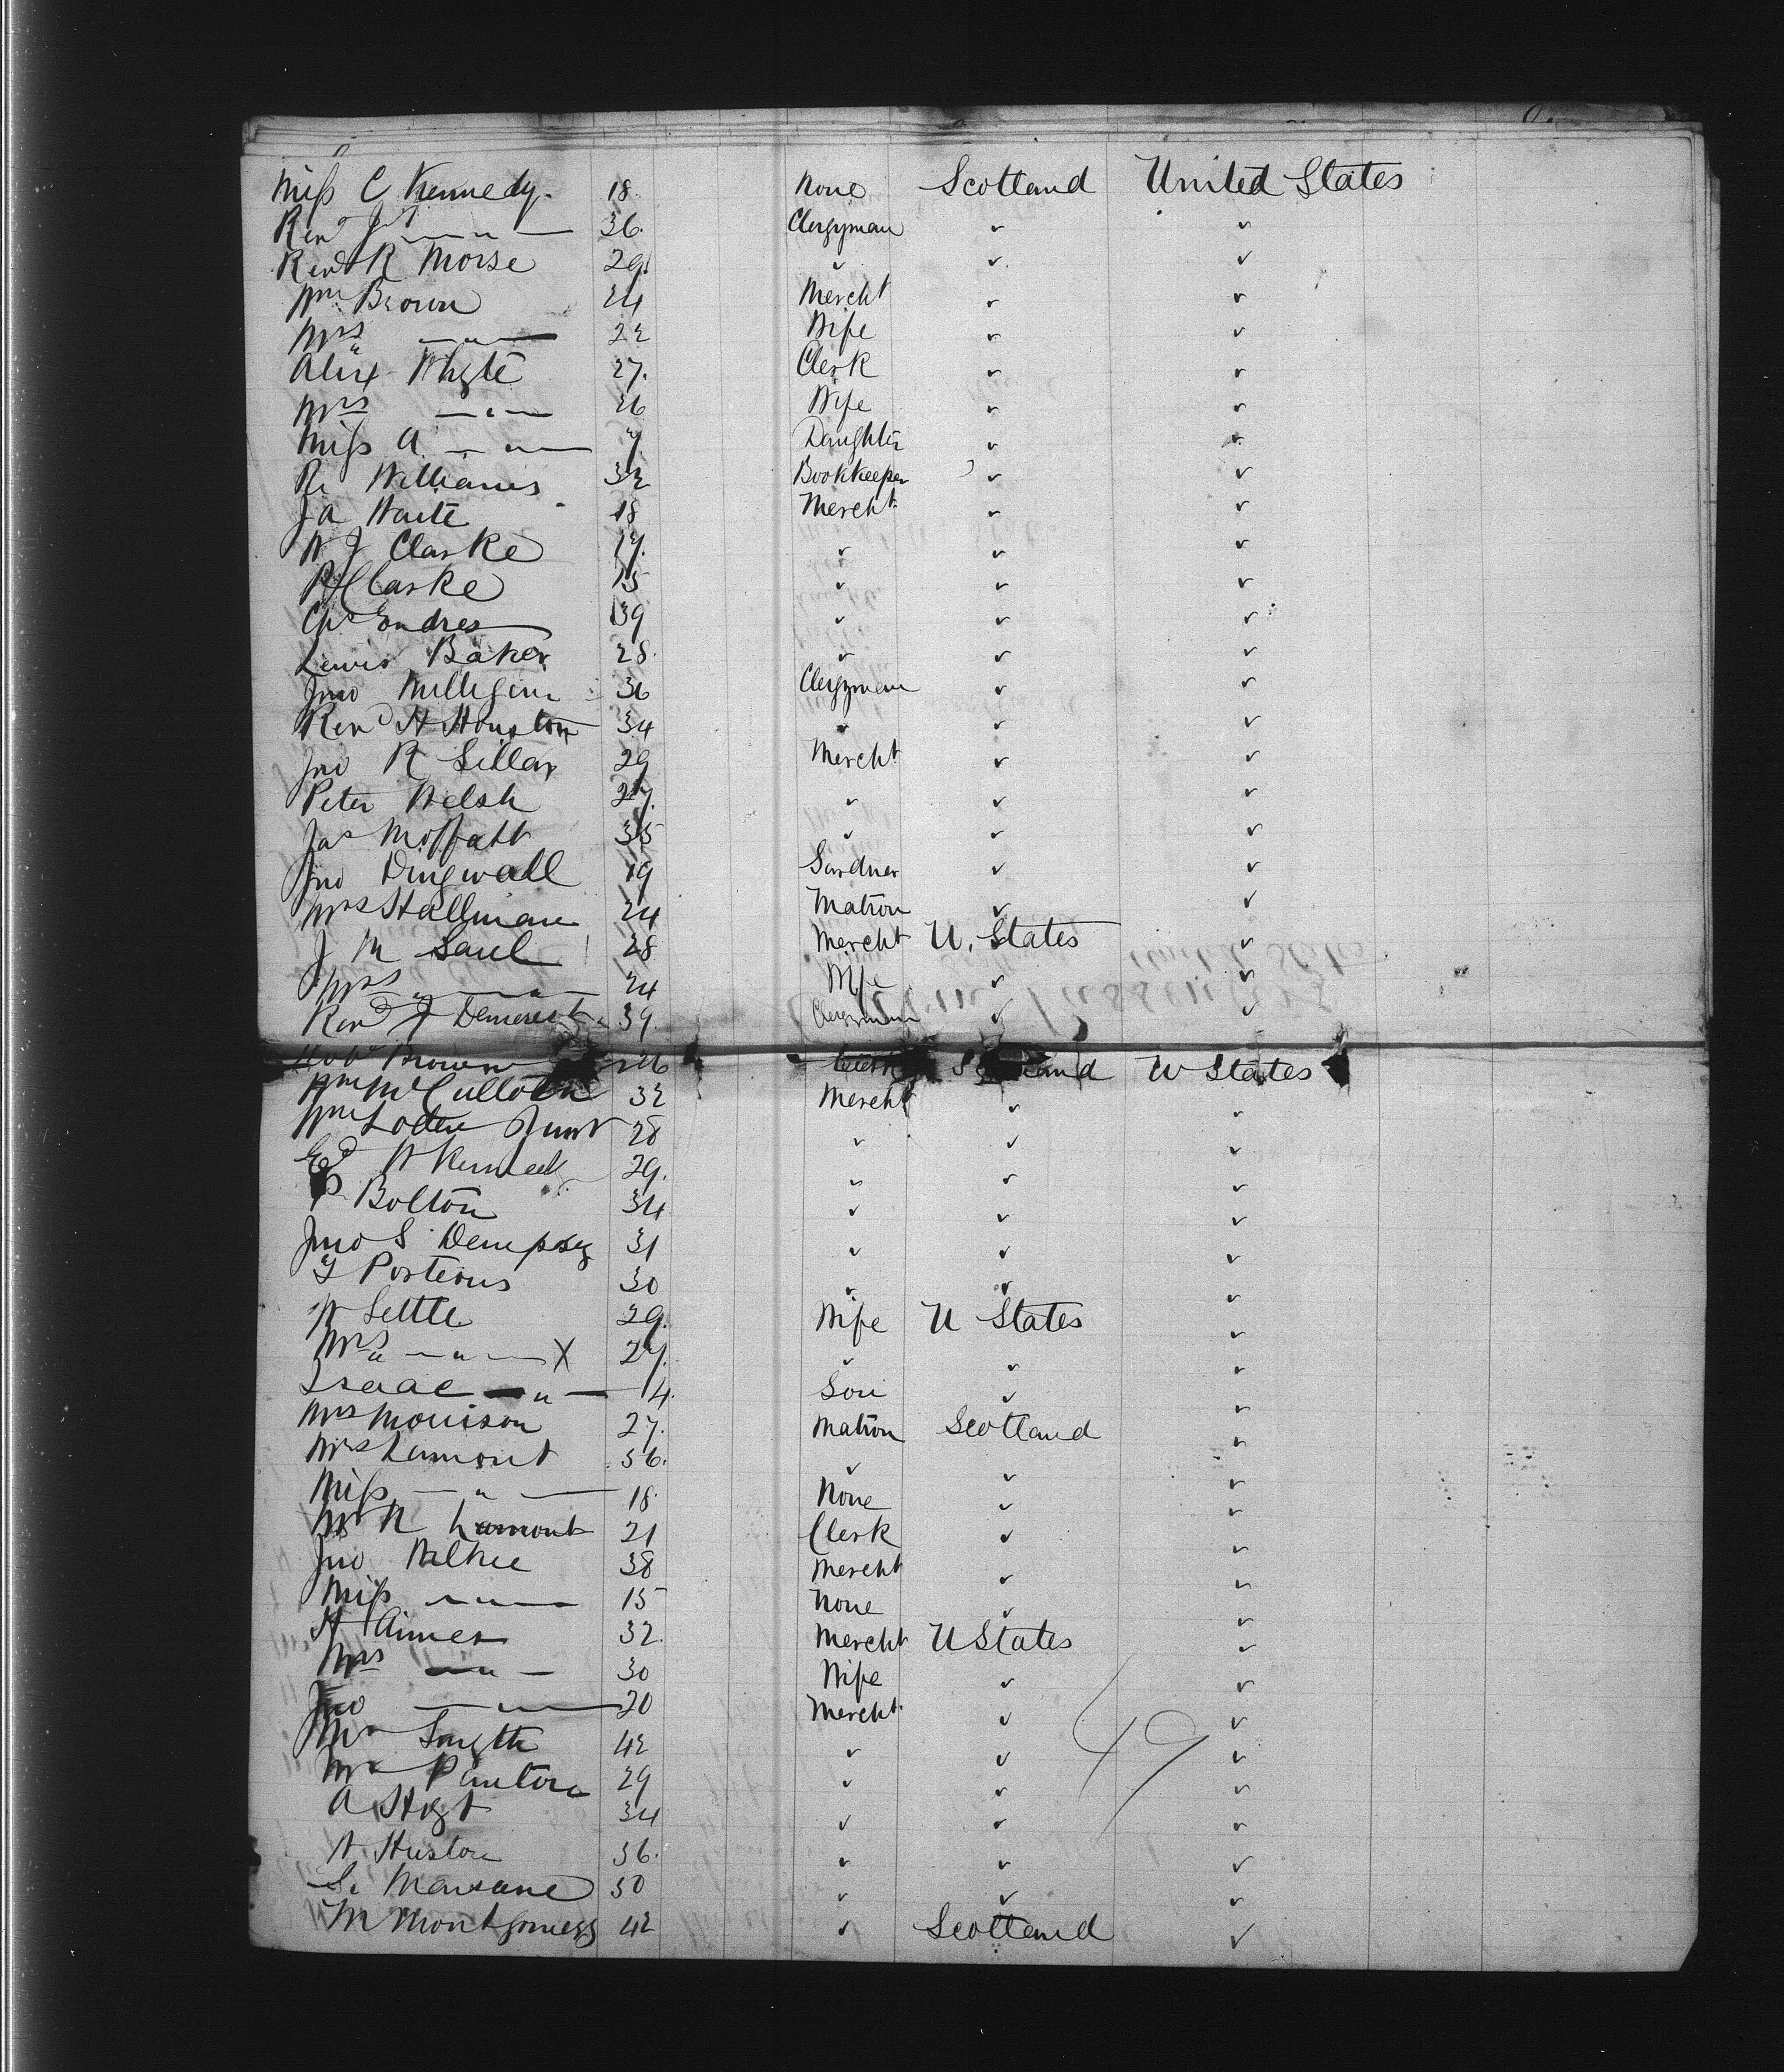 Miss C Kennedy. 18. None Scotland United States
Revd J — " — 36. Clergyman ✓ ✓
Revd R Morse 29. ✓ ✓ ✓
Wm Brown 24 Mercht ✓ ✓
Mrs — " — 22 Wife ✓ ✓
Alex Whyte 27. Clerk ✓ ✓
Mrs — " — 26 Wife ✓ ✓
Miss A. — " — 7. Daughter ✓ ✓
R. Williams 32 Bookkeeper ✓ ✓
Ja Waite 18 Mercht. ✓ ✓
W J Clarke 17. ✓ ✓ ✓
R Clarke 15 ✓ ✓ ✓
Chs Endres 39 ✓ ✓ ✓
Lewis Baker 28. ✓ ✓ ✓
Jno Milligan 36 Clergyman ✓ ✓
Revd H Houston 34 ✓ ✓ ✓
Jno R Sillar 29 Mercht ✓ ✓
Peter Welsh 27. ✓ ✓ ✓
Jas Moffatt 35 ✓ ✓ ✓
Jno Dingwall 19 Gardner ✓ ✓
Mrs Hallman 24 Matron ✓ ✓
J M Saul 28 Mercht U. States ✓
Mrs — " — 24 Wife ✓ ✓
Revd J Demerest 39. Clergyman ✓ ✓
Robt Brown 26 Clerk Scotland U States
Wm McCulloch 32 Mercht ✓ ✓
Wm 28 ✓ ✓ ✓
Ed W Kennedy 29. ✓ ✓ ✓
P Bolton 34 ✓ ✓ ✓
Jno S Dempsey 31 ✓ ✓ ✓
G Porteous 30 ✓ ✓ ✓
W Settle 29. Wife U States ✓
Mrs — " — X 27. ✓ ✓ ✓
Isaac — " — 4. Son ✓ ✓
Mrs Morrison 27. Matron Scotland ✓
Mrs Lamont 36. ✓ ✓ ✓
Miss — " — 18. None ✓ ✓
Mr N Lamont 21 Clerk ✓ ✓
Jno Wilkie 38 Mercht ✓ ✓
Miss — " — 15 None ✓ ✓
H Aimes 32. Mercht U States ✓
Mrs — " — 30 Wife ✓ ✓
Jno — " — 20 Mercht. ✓ ✓
Mr Smyth 42 ✓ ✓ ✓
Mr Panton 29 ✓ ✓ ✓
49
A Hoyt 34 ✓ ✓ ✓
A Huston 36. ✓ ✓ ✓
S. Marsane 30 ✓ ✓ ✓
M Montgomery 42 ✓ Scotland ✓